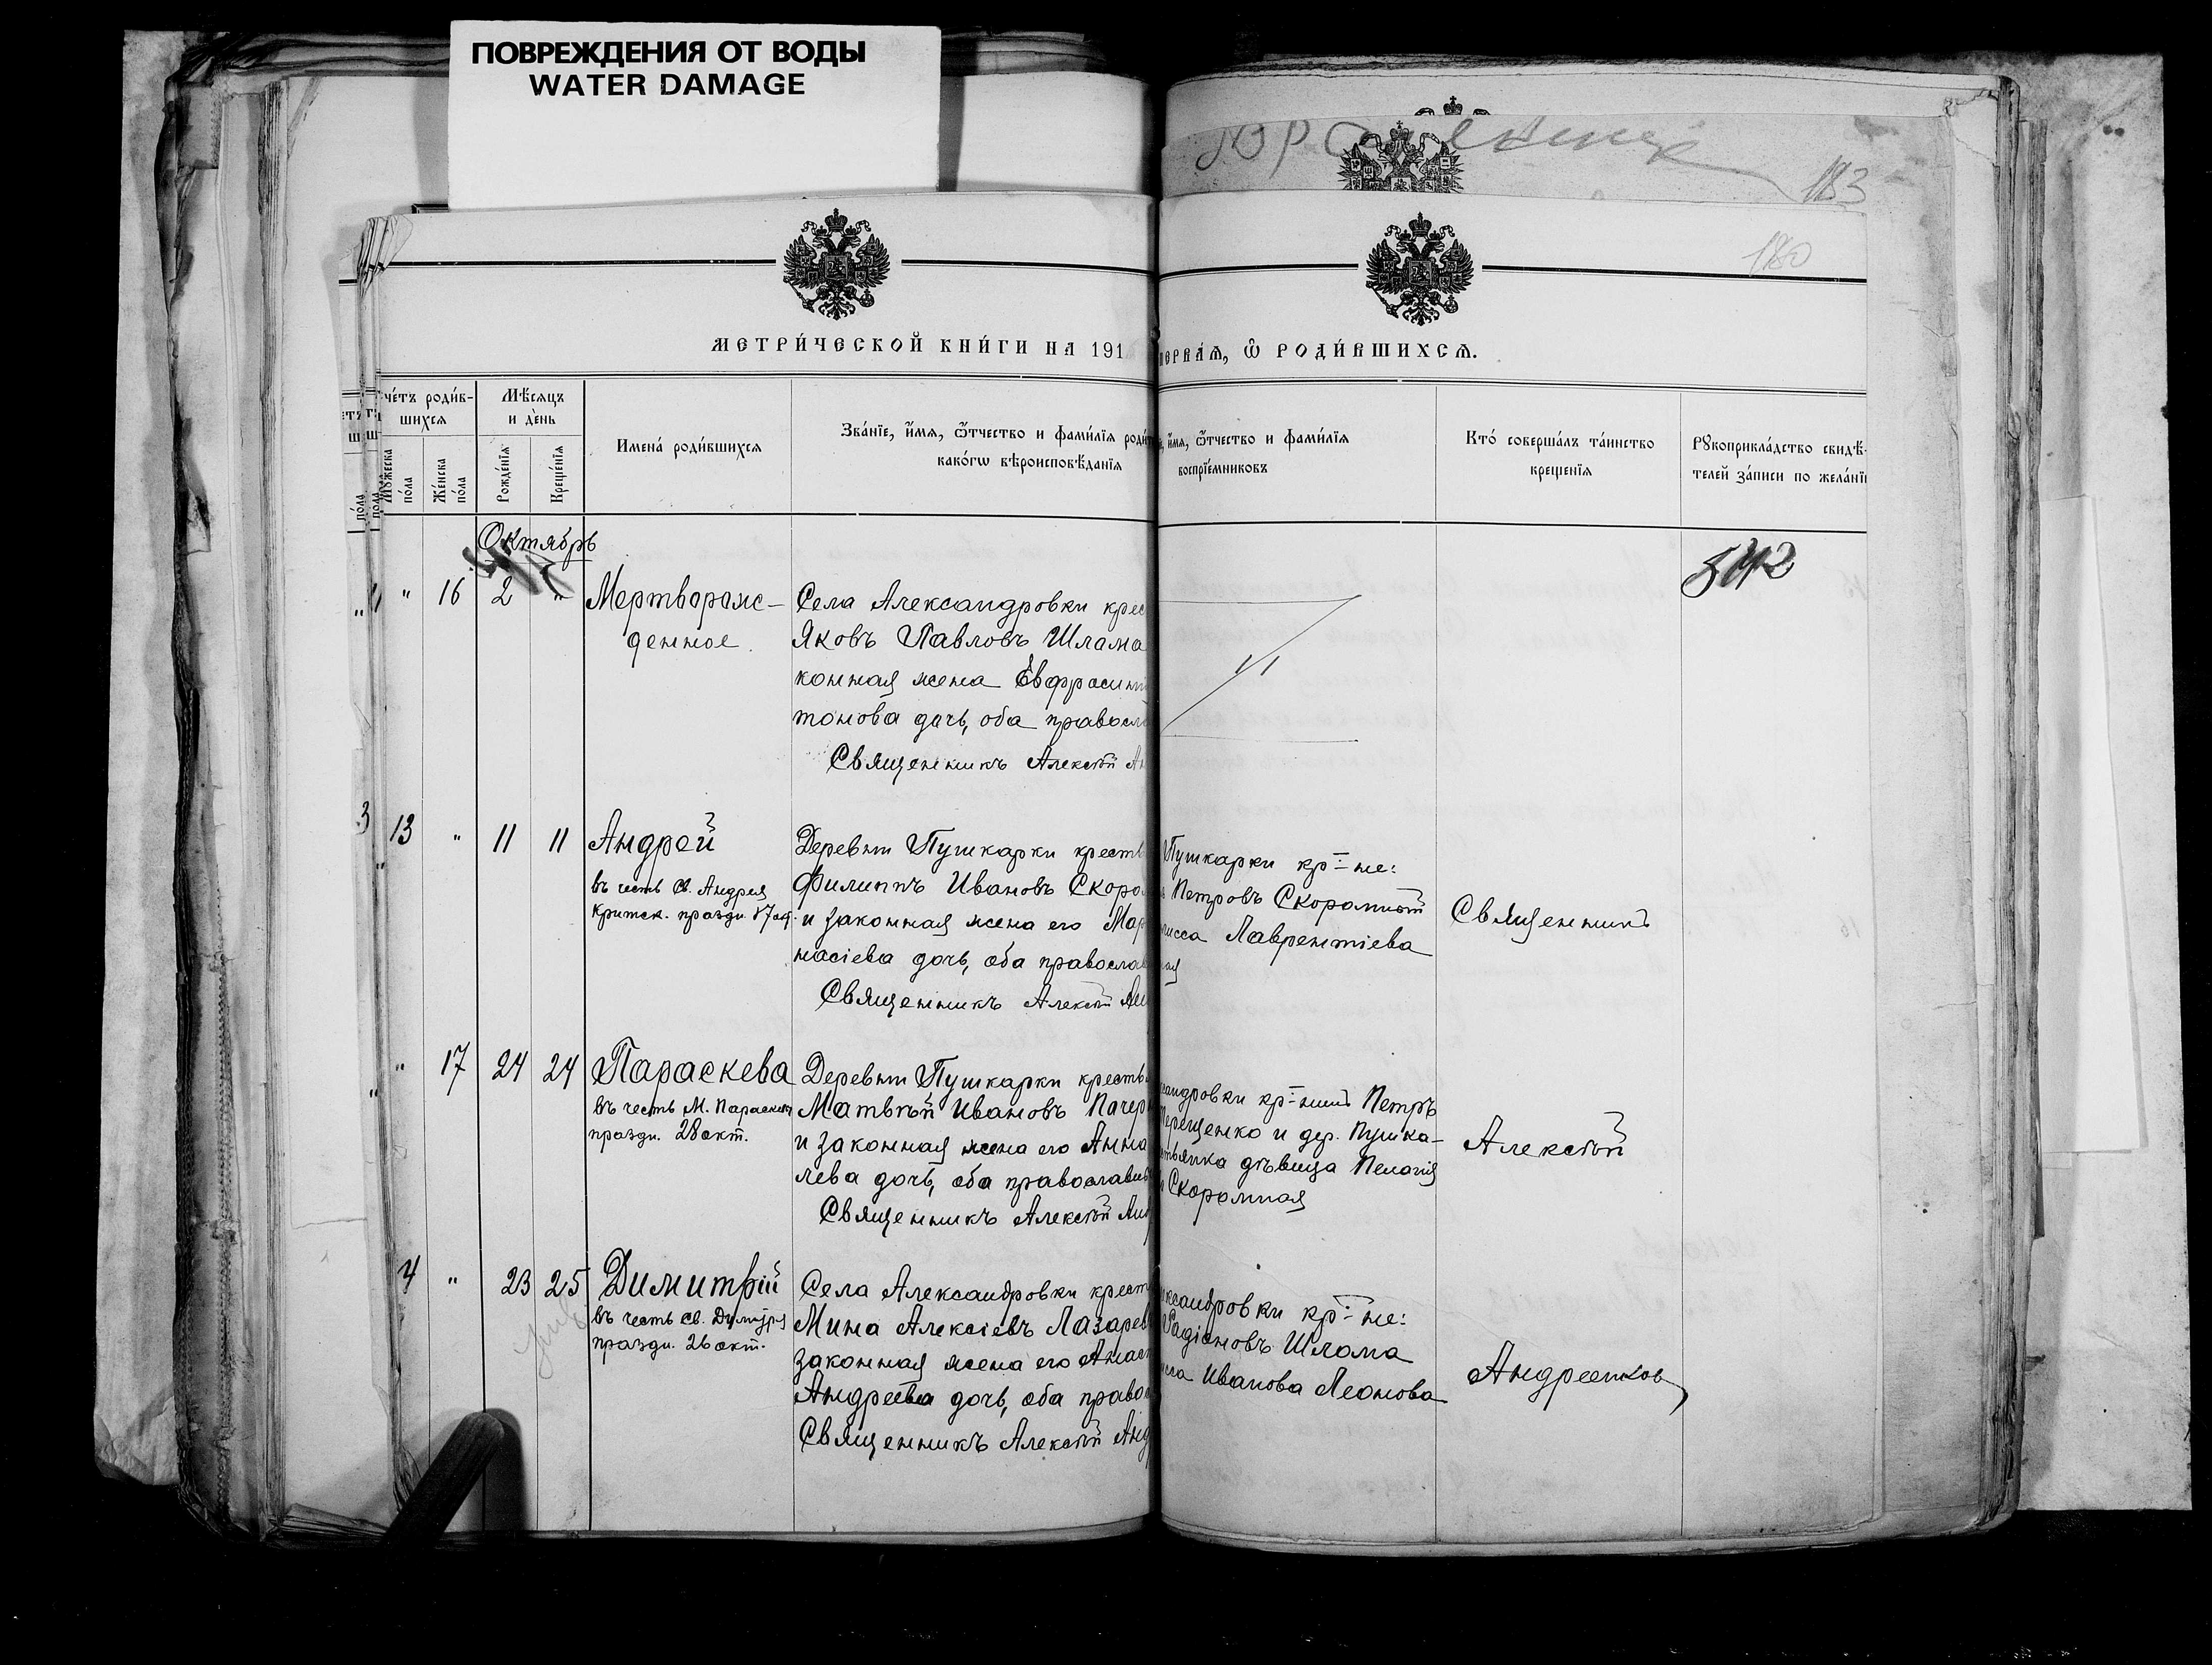 ПОВРЕЖДЕНИЯ ОТ ВОДЫ
WATER DAMAGE
183
180
МЕТРИ́ЧЕСКОЙ КНИ́ГИ НА 191
ПЕРВАѦ, Ѿ РОДИ́ВШИХСѦ.
че́тъ роди́в-
шихсѧ
Мѣ́сѧцъ
и де́нь
Мꙋ́жеска по́ла
Же́нска по́ла
Рожде́нїѧ
Креще́нїѧ
Имена̀ роди́вшихсѧ
Зва́нїе, и҆́мѧ, ѻ҆́тчество и фами́лїѧ роди
како́гѡ вѣроисповѣ́данїѧ
и҆́мѧ, ѻ҆́тчество и фами́лїѧ
воспрїе́мниковъ
Кто̀ соверша́лъ та́инство
креще́нїѧ
Рꙋкоприкла́дство свидѣ́-
телей за́писи по жела́нїю
Октябрь
542
" 16 2 "
Мертворож-
денное.
Села Александровки крес
Яковъ Павловъ Шлама
конная жена Евфросин
тонова дочь, оба правосл
Священникъ Алексѣй Ан
13 " 11 11
Андрей
въ честь Св. Андрея
Критск. праздн. 17 окт.
Деревни Пушкарки кресть
Филиппъ Ивановъ Скоро
и законная жена его Мар
насіева дочь, оба православ
Священникъ Алексѣй Ан
Пушкарки кр-не:
Петровъ Скоромный
Лаврентіева
ная
Священникъ
" 17 24 24
Параскева
въ честь М. Параскевы
праздн. 28 окт.
Деревни Пушкарки кресть
Матвѣй Ивановъ Почер
и законная жена его Анна
лева дочь, оба православн
Священникъ Алексѣй Анд
сандровки кр-нинъ Петръ
Терещенко и дер. Пушка-
стьянка дѣвица Пелагія
Скоромная
Алексѣй
4 " 23 25
Димитрій
въ честь Св. Димитрія
праздн. 26 окт.
Села Александровки крест
Мина Алексіевъ Лазарев
законная жена его Анаст
Андреева дочь, оба правос
Священникъ Алексѣй Анд
ксандровки кр-не:
Радіоновъ Шлама
Иванова Леонова
Андреенков